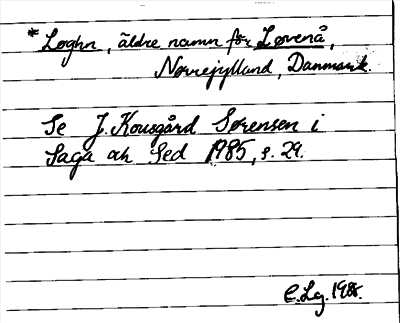 * Loghn, äldre namn för Løvenå,
Nørrejylland, Danmark.
Se J. Kousgård Sørensen i
Saga och Sed 1985, s. 29.
E.Lg. 1988.